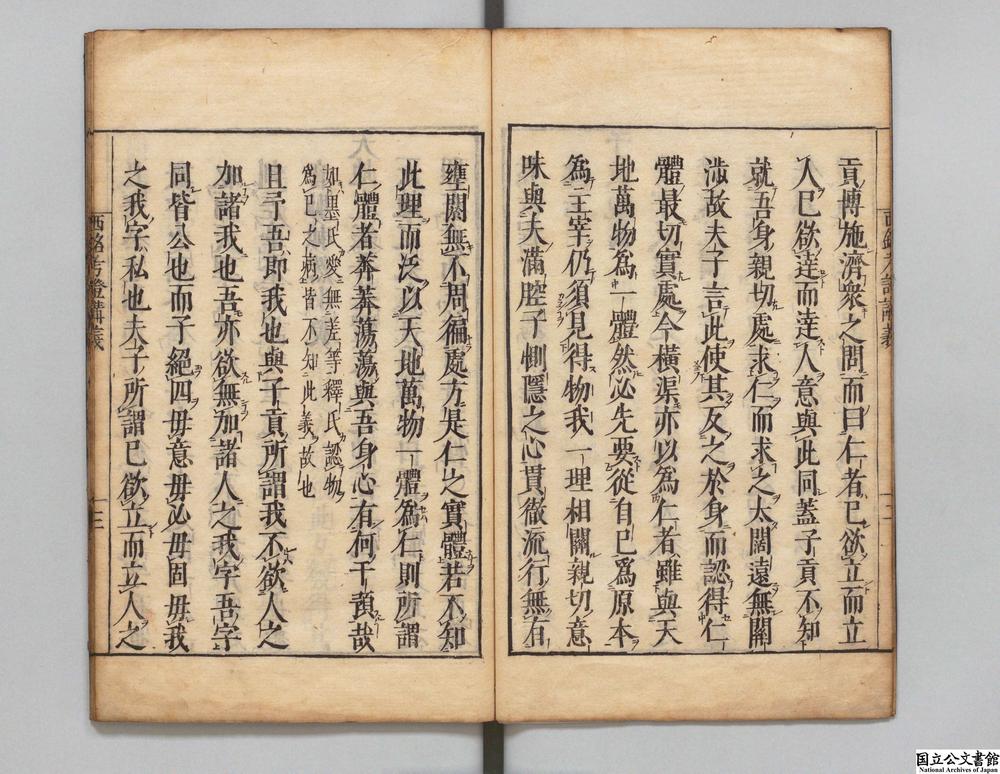 貢博施濟衆之問而曰仁者己欲立而立
人己欲達而達人意與此同蓋子貢不知
就吾身親切處求仁而求之太闊遠無關
涉故夫子言此使其反之於身而認得仁
體最切實處今橫渠亦以爲仁者雖與天
地萬物爲一體然必先要從自己爲原本
爲主宰仍須見得物我一理相關親切意
味與夫滿腔子惻隱之心貫徹流行無有
壅閼無不周徧處方是仁之實體若不知
此理而泛以天地萬物一體爲仁則所謂
仁體者莽莽蕩蕩與吾身心有何干預哉
如墨氏愛無差等釋氏認物
爲己之病皆不知此義故也
且予吾卽我也與子貢所謂我不欲人之
加諸我也吾亦欲無加諸人之我字吾字
同皆公也而子絕四毋意毋必毋固毋我
之我字私也夫子所謂己欲立而立人之
西銘考證講義
二
西銘考證講義
三
国立公文書館
National Archives of Japan